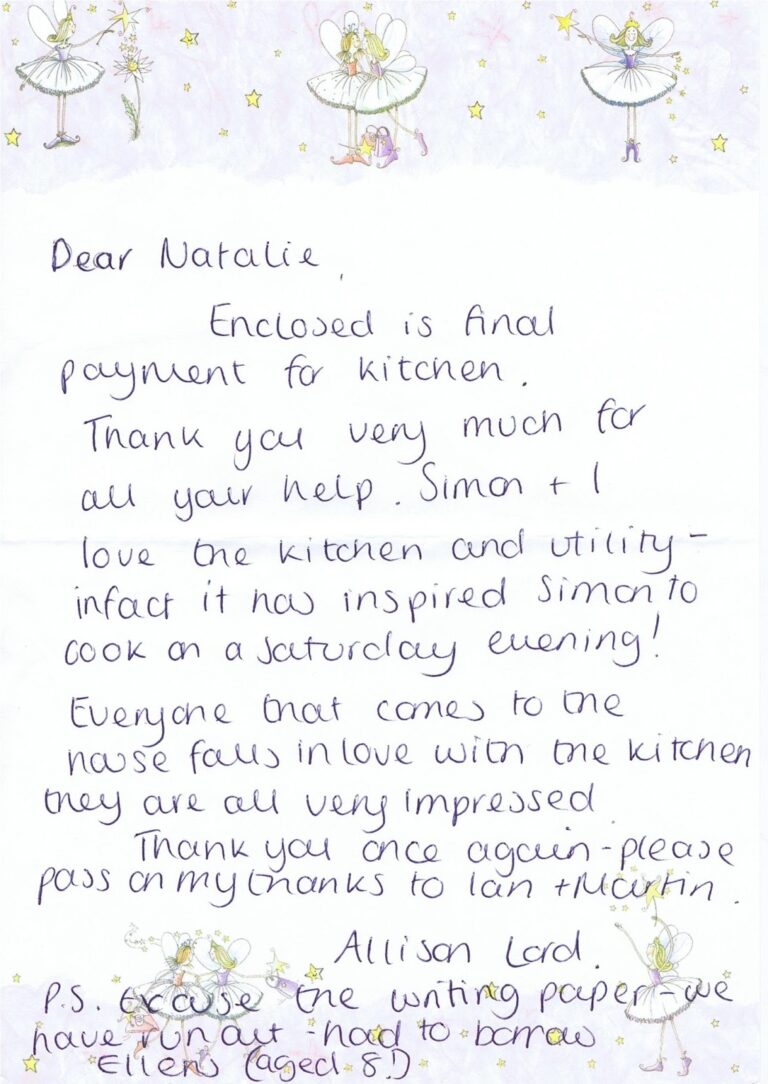 Dear Natalie,
Enclosed is final
payment for kitchen.
Thank you very much for
all your help. Simon + I
love the kitchen and utility -
infact it has inspired Simon to
cook on a Saturday evening!
Everyone that comes to the
house falls in love with the kitchen
they are all very impressed.
Thank you once again - please
pass on my thanks to Ian + Martin.
Allison Lord.
P.S. Excuse the writing paper - we
have run out - had to borrow
Ellens (aged 8!)